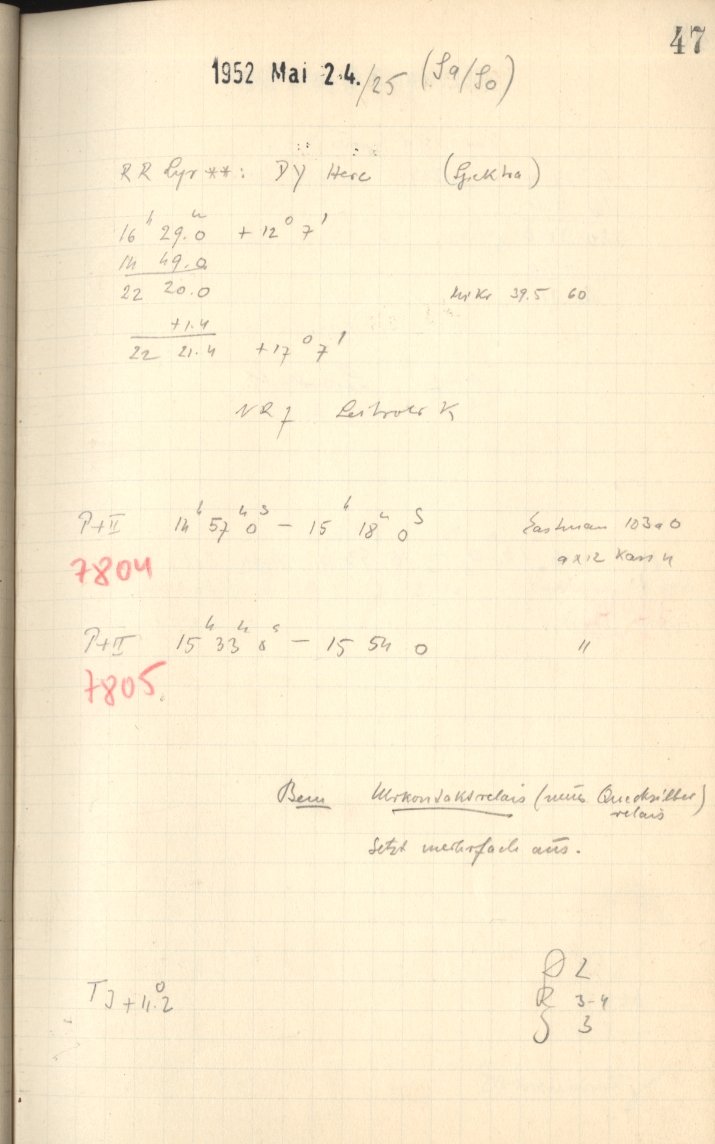 47
1952 Mai 24./25 (Sa/So)
RR Lyr **: DY Herc (Spektra)
16ʰ 29.0ᵐ +12° 7'
14 49.0
22 20.0 Mikr 39.5 60
+1.4
22 21.4 +17° 7'
NR 7 Leitrohr K
P+II 14ʰ 57ᵐ 0ˢ – 15ʰ 18ᵐ 0ˢ Eastman 103a0
7804 9x12
P+II 15ʰ 33ᵐ 0ˢ – 15 54 0 "
7805
Bem Uhrkontaktrelais (neues Quecksilber
relais)
setzt mehrfach aus.
TJ +4.2°
D 2
R 3-4
S 3